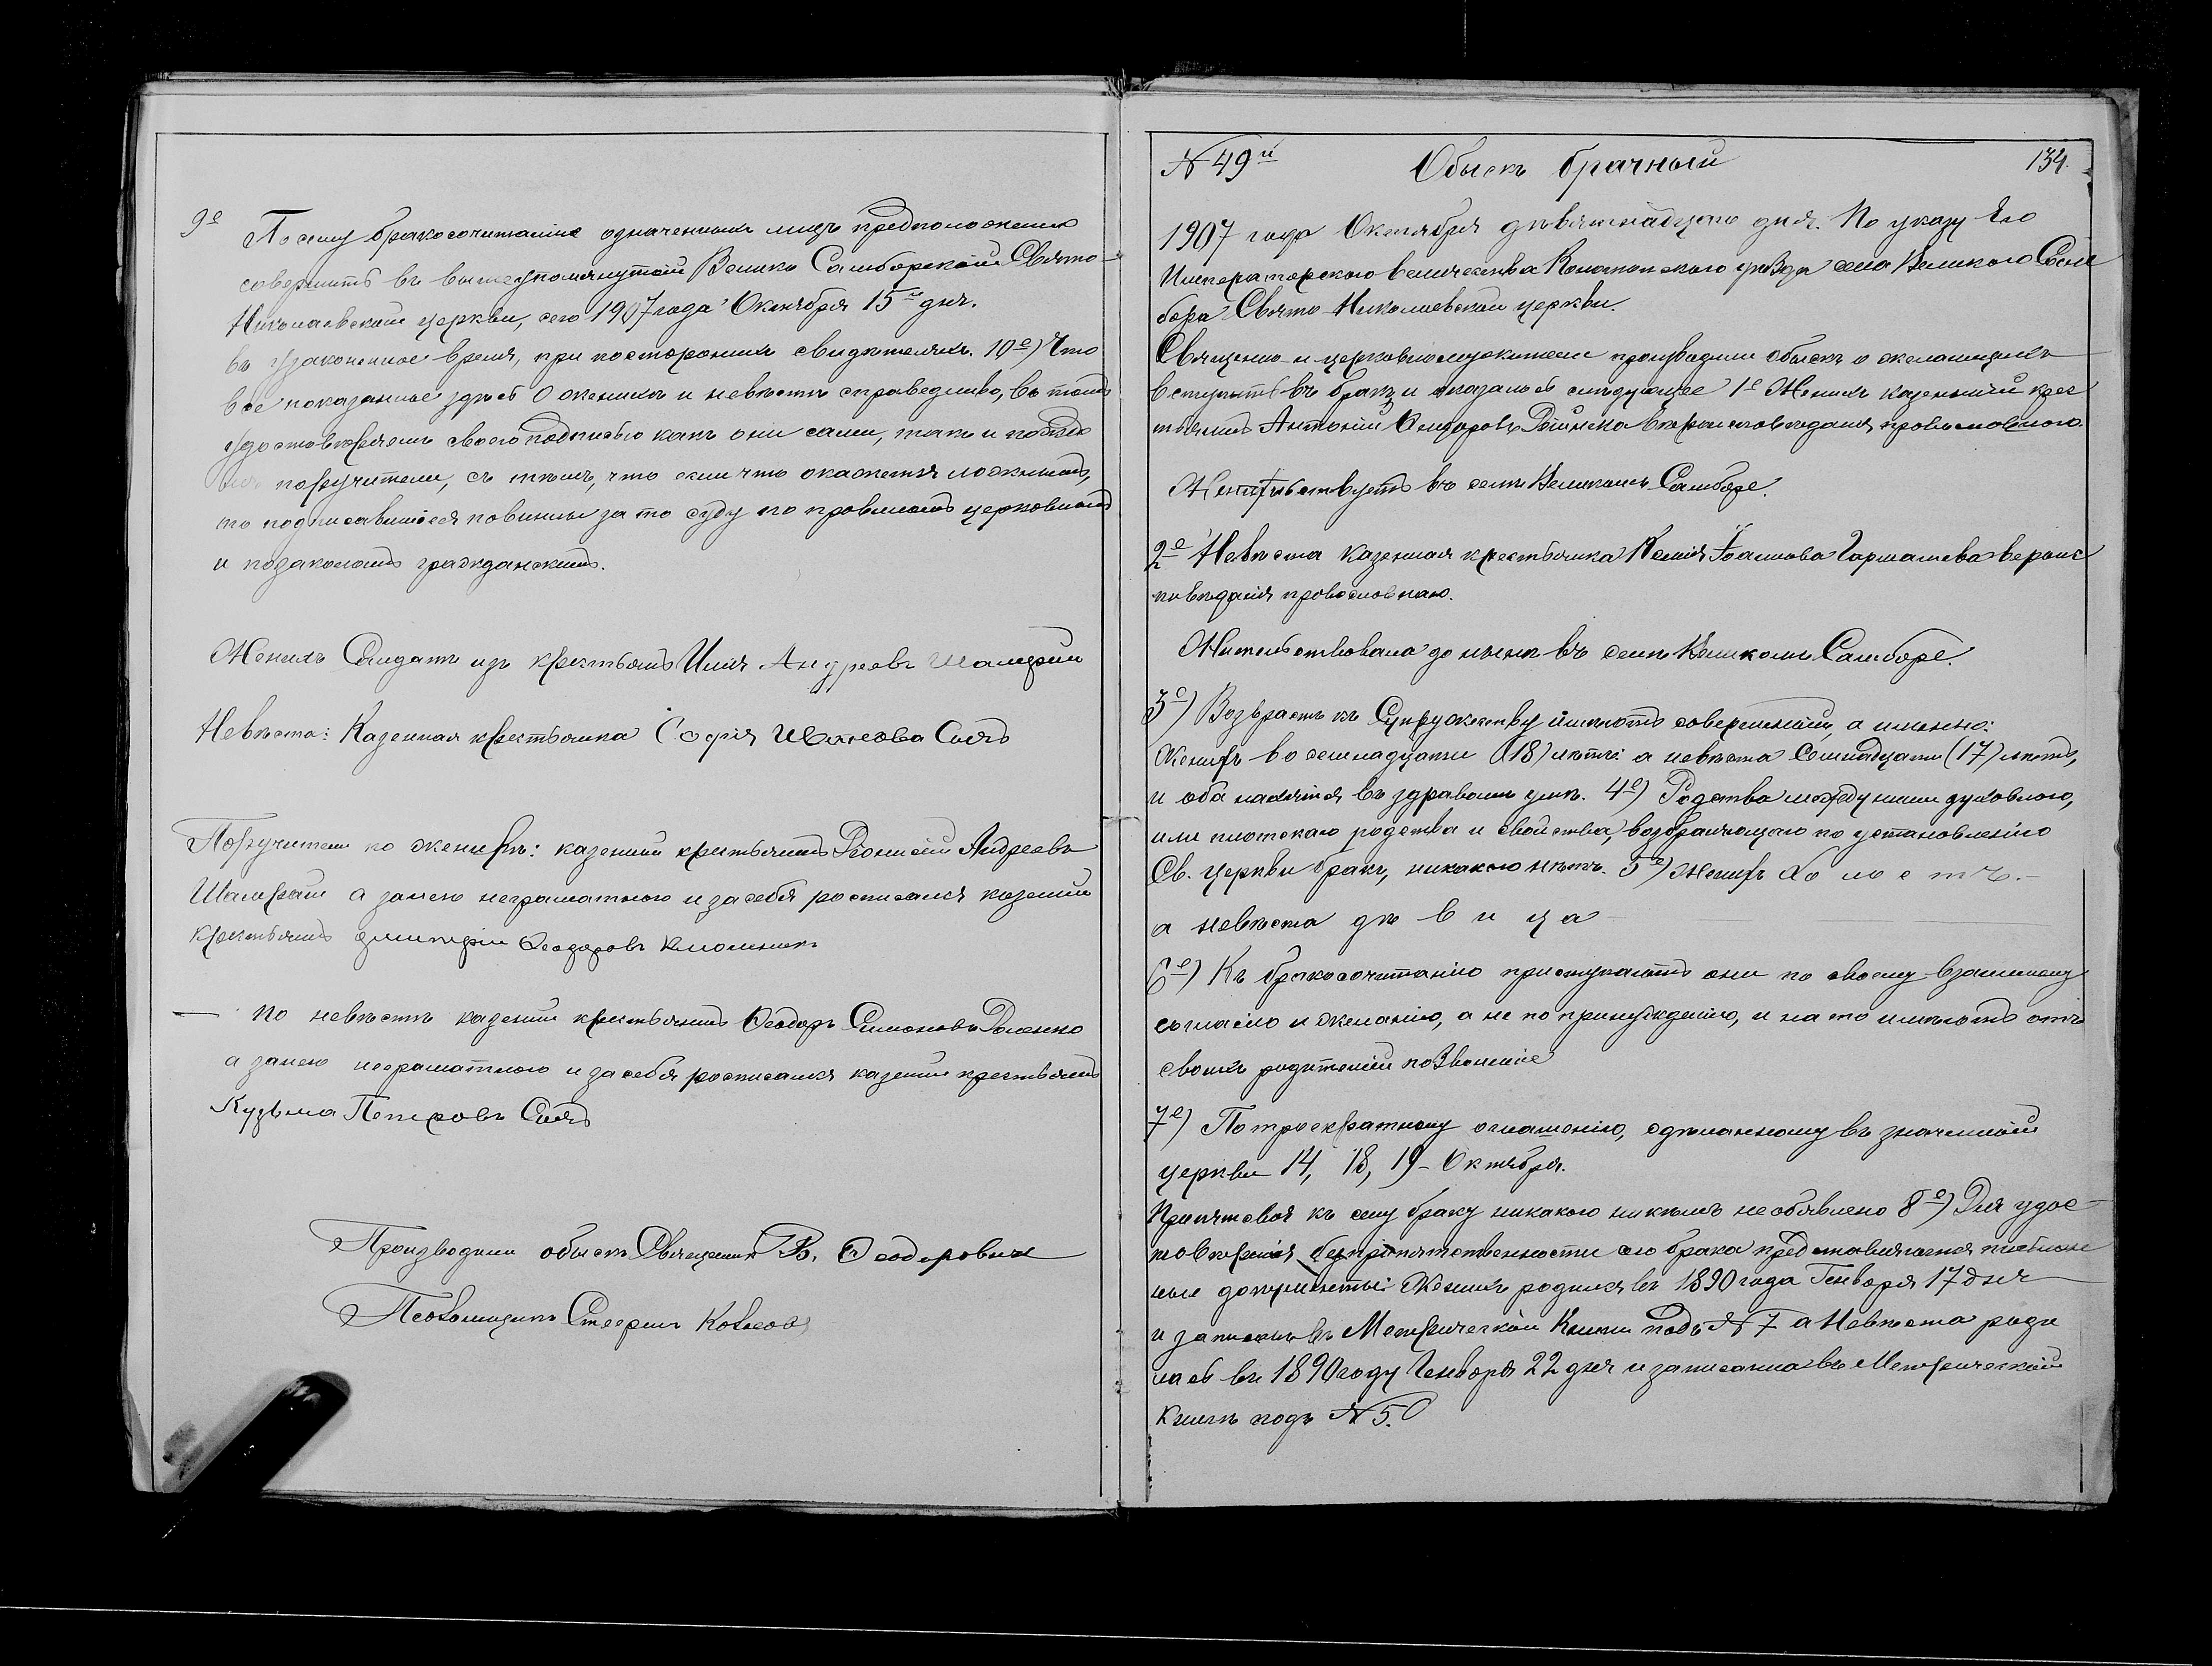 9е Посему бракосочитаніе означенныхъ лицъ предположено
совершить въ вышеупомянутой Велико Самборской Свято-
Николаевской церкви, сего 1907 года Октября 15го дня.
въ узаконенное время, при постороннихъ свидѣтеляхъ. 10е) Что
все показанное здѣсь о женихѣ и невѣстѣ справедливо, въ томъ
удостовѣряемъ своею подписью какъ они сами, такъ и по
поручители, съ тѣмъ, что если что окажется ложнымъ,
то подписавшіеся повинны за то суду по правиламъ церковнымъ
и по законамъ гражданскимъ.
Женихъ Солдатъ изъ крестьянъ Илія Андреевъ Шамрай
Невѣста: Казенная крестьянка Софія Иванова Сыъ
Поручители по женихѣ: казенный крестьянинъ Андреевъ
Шамрай а за него неграмотного и за себя росписался казенный
крестьянинъ Димитрій Ѳеодоровъ
— по невѣстѣ казенный крестьянинъ Ѳеодоръ Симоновъ
а за него неграмотного и за себя росписался казенный крестьянинъ
Кузьма Петровъ
Производили обыскъ Священникъ В. Ѳеодоровичъ
Псаломщикъ Стефанъ
№ 49й Обыскъ брачный 134.
1907 года Октября дѣвятнадцаго дня. По указу Его
Императорскаго величества Конотопскаго уѣзда села Великого Сам
бора Свято-Николаевской церкви.
Священно и церковнослужители производили обыскъ о желающихъ
вступить въ бракъ и оказалось слѣдующее 1е Женихъ казенный крес
тьянинъ Антоній вероисповеданія провославного.
Жительствуетъ въ селѣ Великомъ Самборе.
2е Невѣста казенная крестьянка Іоаннова Гармашева вероис
поведанія провославнаго.
Жительствовала до нынѣ въ селѣ Великомъ Самборе.
3е) Возрастъ къ Супружеству имѣютъ совершенный, а именно:
Женихъ восемнадцати (18) лѣтъ: а невѣста Семнадцати (17) лѣтъ,
и оба находятся въ здравомъ умѣ. 4е) Родства между ними духовного,
или плотскаго родства и свойства, возбраняющаго по установленію
Св. церкви бракъ, никакого нѣтъ. 5е) Женихъ Холостъ.-
а невѣста дѣвица
6е) Къ бракосочитанію приступаютъ они по своему взаимному
согласію и желанію, а не по принужденію, и на то имѣютъ отъ
своихъ родителей позволеніе
7е) По троекратному оглашенію, сдѣланному въ значенной
церкви 14, 18, 19- Октября.
Препятсвія къ сему браку никакого никѣмъ не обявлено 8е) Для удос-
товѣренія безпрепятственности сего брака представляются письмен
ные документы: Женихъ родился въ 1890 года Генворя 17 дня
и записанъ въ Метрической Книги подъ № 7 а Невѣста роди
лась въ 1890 году Генворя 22 дня и записанна въ Метрической
Книгѣ подъ № 5.